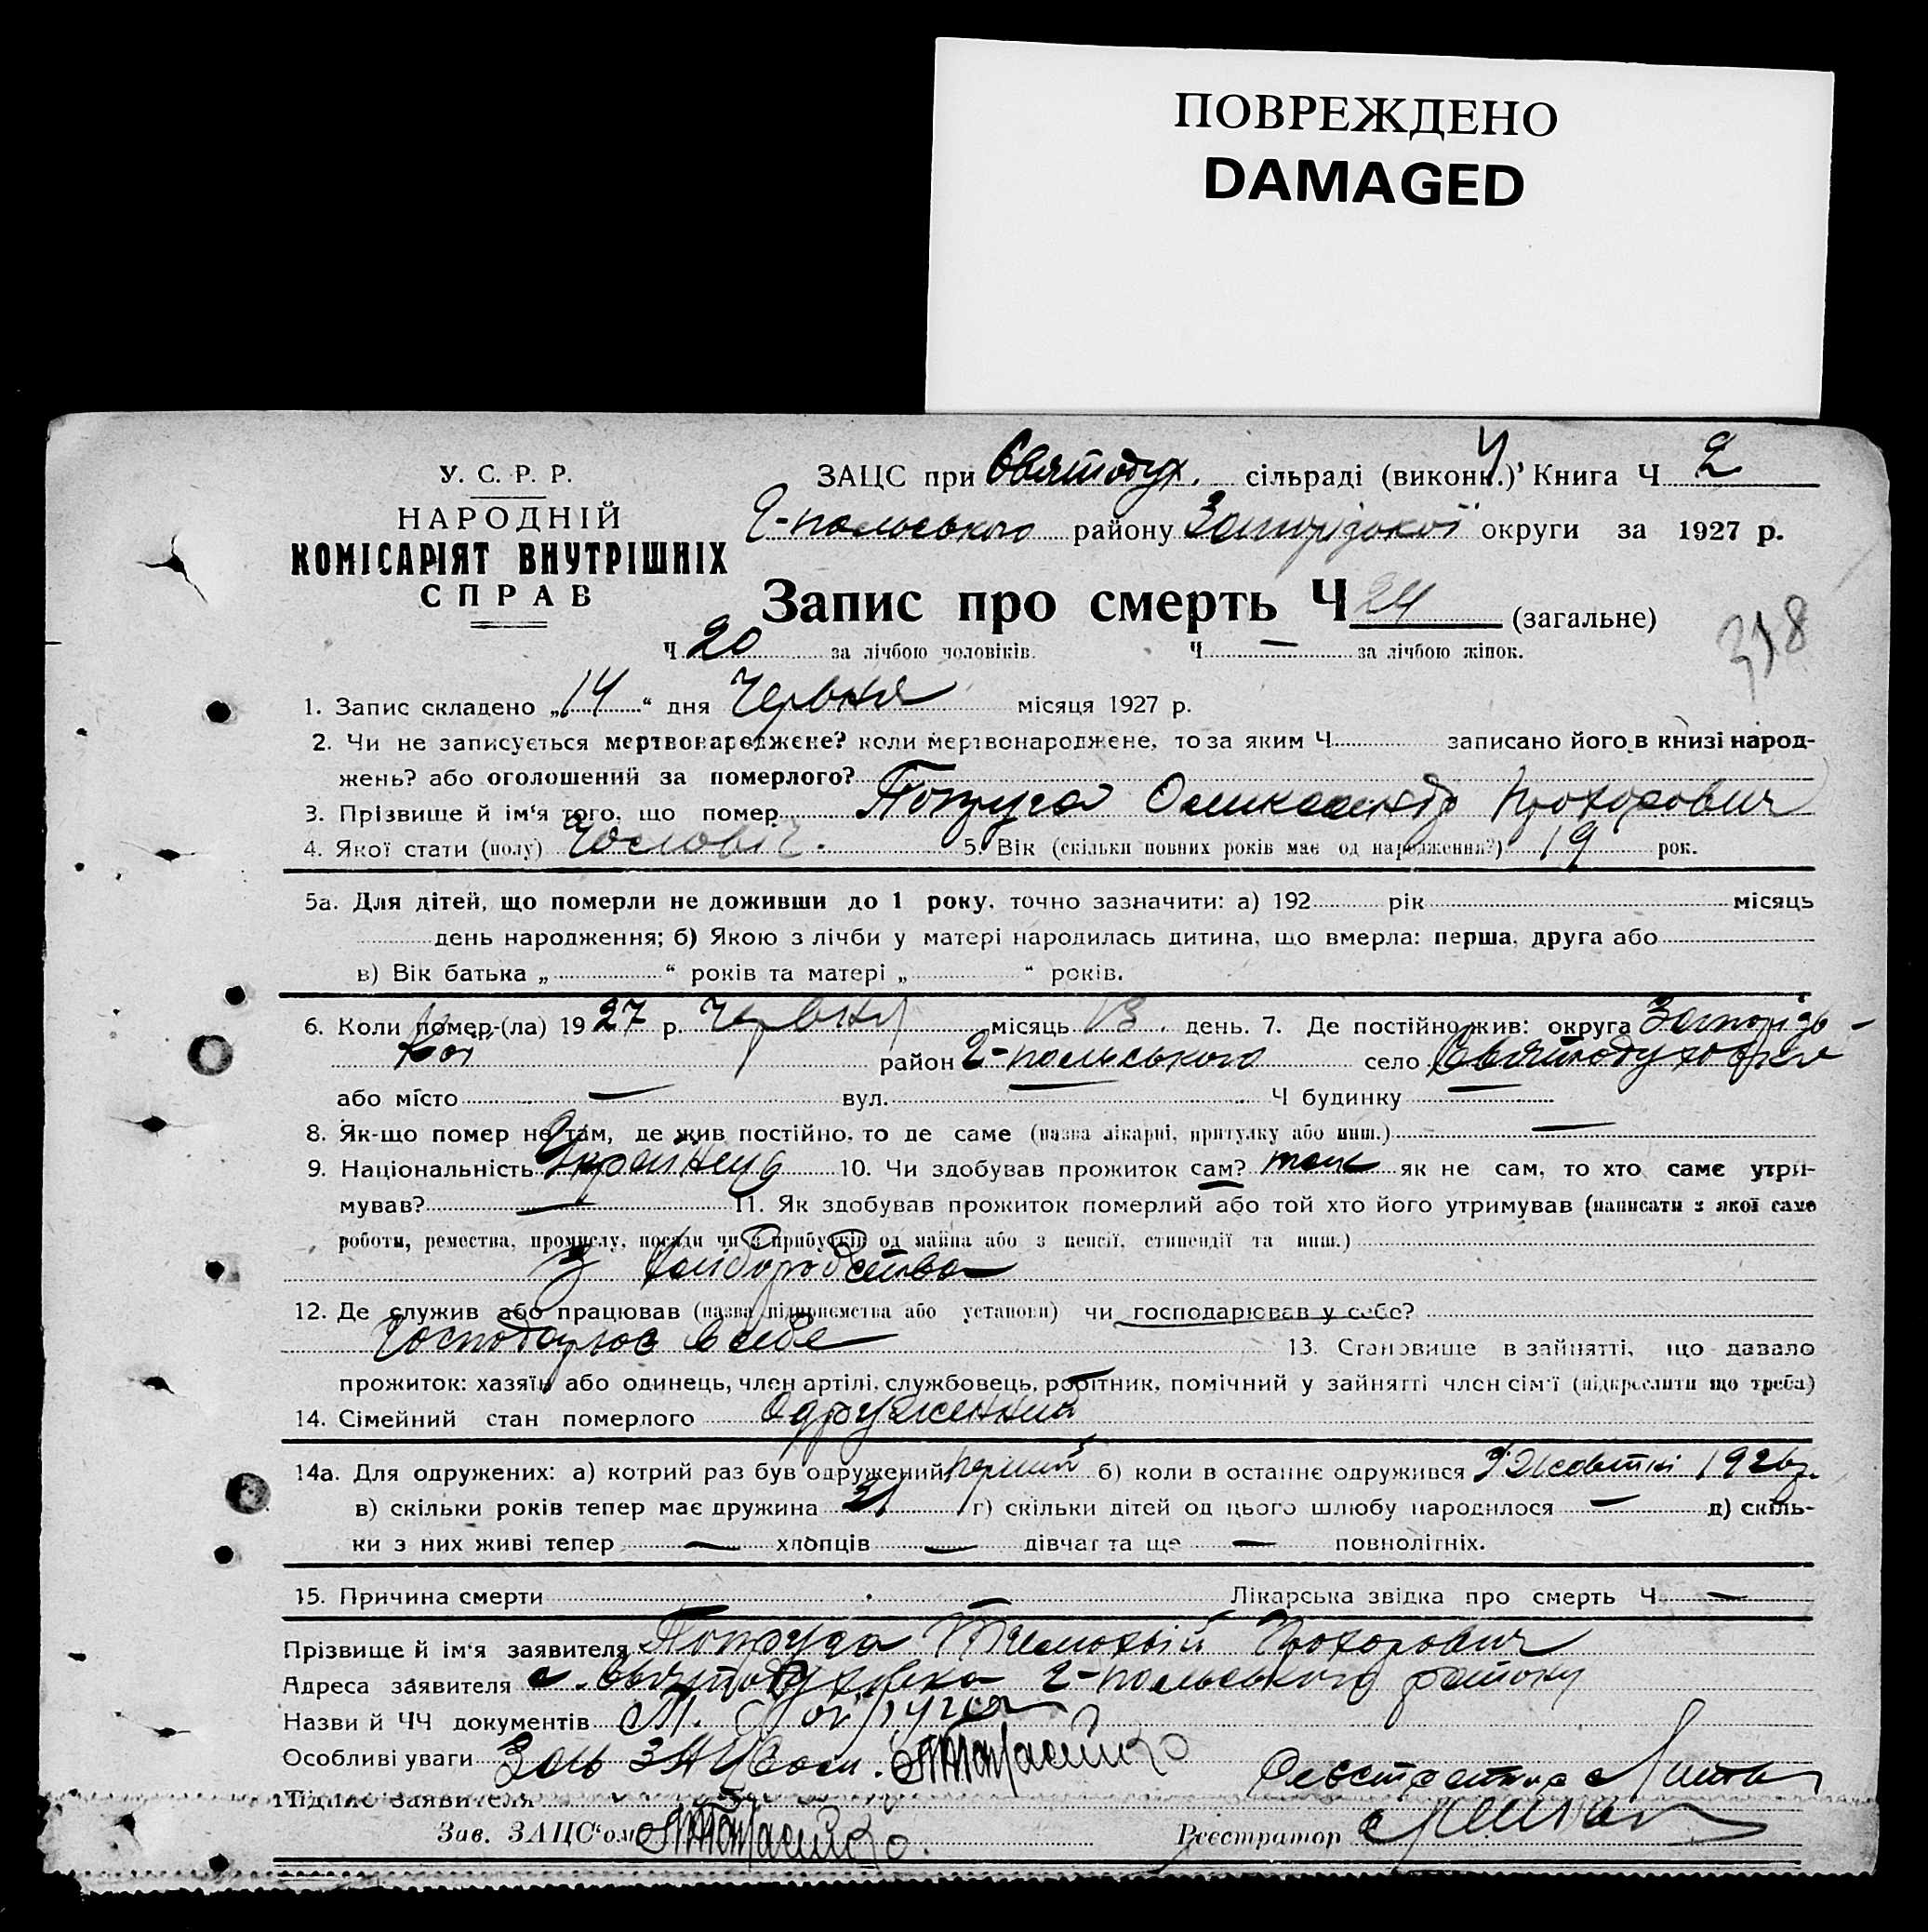 ПОВРЕЖДЕНО
DAMAGED
У. С. Р. Р.
НАРОДНІЙ
КОМІСАРІЯТ ВНУТРІШНІХ
СПРАВ
ЗАЦС при Святодух. сільраді (виконк.) Книга Ч 2
2-польського району Запорізької округи за 1927 р.
Запис про смерть Ч 24 (загальне)
318
Ч 20 за лічбою чоловіків. Ч — за лічбою жінок.
1. Запис складено „14“ дня Червня місяця 1927 р.
2. Чи не записується мертвонароджене? коли мертвонароджене, то за яким Ч записано його в книзі народ-
жень? або оголошений за померлого?
3. Прізвище й ім'я того, що помер Попруга Олександр Прохорович
4. Якої стати (полу) Чоловіч. 5. Вік (скільки повних років має од народження?) 19 рок.
5а. Для дітей, що померли не доживши до 1 року, точно зазначити: а) 192 рік місяць
день народження; б) Якою з лічби у матері народилась дитина, що вмерла: перша, друга або
в) Вік батька „ “ років та матері „ “ років.
6. Коли помер-(ла) 1927 р. Червня місяць 13 день. 7. Де постійно жив: округа Запорізь-
кої район 2-польського село Святодуховка
або місто — вул. — Ч будинку —
8. Як-що помер не там, де жив постійно, то де саме (назва лікарні, притулку або инш.) —
9. Національність Українець 10. Чи здобував прожиток сам? так як не сам, то хто саме утри-
мував? — 11. Як здобував прожиток померлий або той хто його утримував (написати з якої саме
роботи, ремества, промислу, посади чи з прибутків од майна або з пенсії, стипендії та инш.)
З хліборобства
12. Де служив або працював (назва підприємства або установи) чи господарював у себе?
Господарював в себе 13. Становище в зайнятті, що давало
прожиток: хазяїн або одинець, член артілі, службовець, робітник, помічний у зайнятті член сім'ї (підкреслити що треба)
14. Сімейний стан померлого Одружений
14а. Для одружених: а) котрий раз був одружений перший б) коли в останнє одружився Жовтні 1926 р.
в) скільки років тепер має дружина 21 г) скільки дітей од цього шлюбу народилося — д) скіль-
ки з них живі тепер — хлопців — дівчат та ще — повнолітніх.
15. Причина смерти Лікарська звідка про смерть Ч —
Прізвище й ім'я заявителя Попруга Тимохвій Прохорович
Адреса заявителя с. Святодухівка 2-польського району
Назви й ЧЧ документів Т. Попруга
Особливі уваги Зав ЗАЦСом.
Підпис заявителя
Зав. ЗАЦС'ом Реєстратор